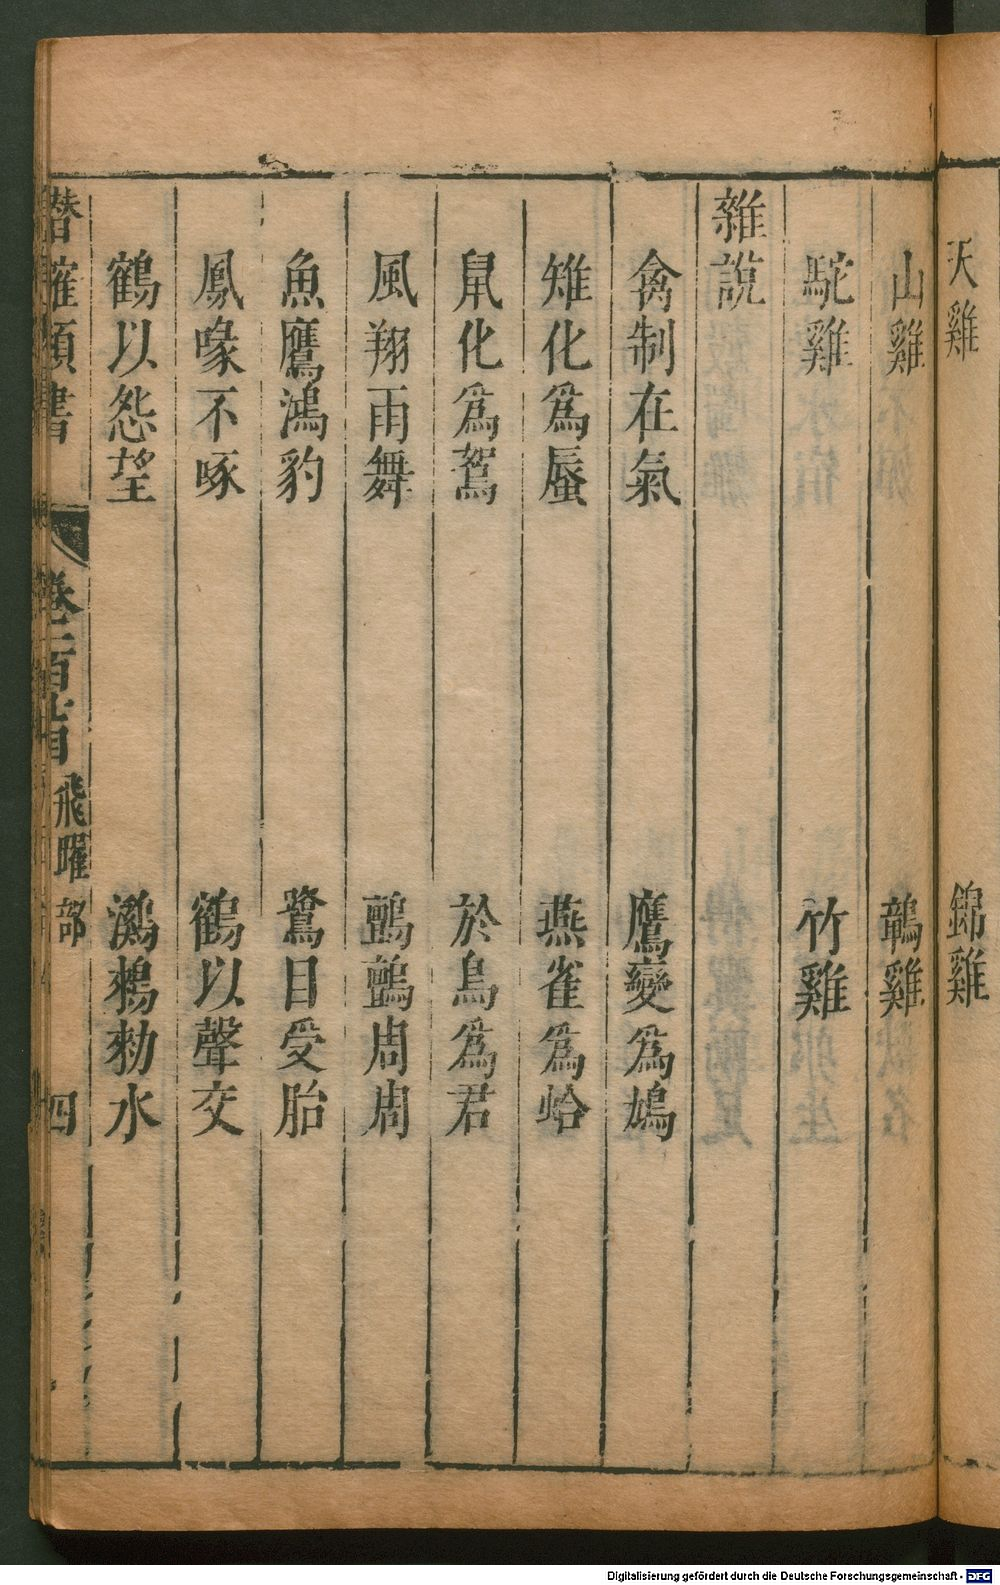 天雞　錦雞
山雞　鶤雞
駝雞　竹雞
雜說
禽制在氣　鷹變爲鳩
雉化爲蜃　燕雀爲蛤
鼠化爲鴽　於鳥爲君
風翔雨舞　周周
魚鷹鴻豹　鷺目受胎
鳳喙不啄　鶴以聲交
鶴以怨望　鸂鶒勑水
潛確類書　卷一百　飛躍部　四
Digitalisierung gefördert durch die Deutsche Forschungsgemeinschaft - DFG